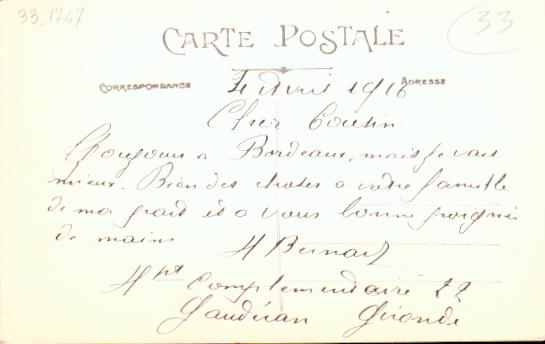 33.1747
33
CARTE POSTALE
CORRESPONDANCE
ADRESSE
4 Avril 1916
Cher Cousin
Toujours a Bordeaux, mais je vais
mieux. Bien des choses a votre famille
de ma part et a vous bonne poignée
de mains
H Bernard
Hpt Complementaire 22
Caudéran Gironde